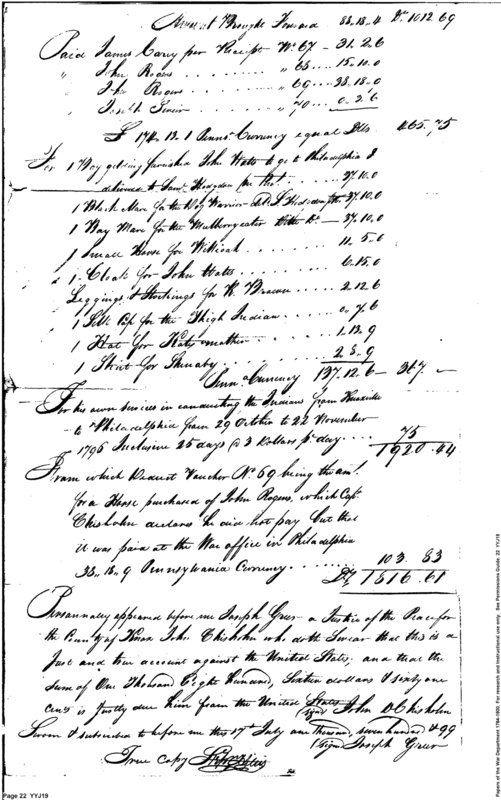 Amount Brought Forward 88.18.4 Drs 1012.69
Paid James Carey per Receipt No 67 - 31.2.6
" John Rogers . . . . . . " 68 . . . 15.10.0
" John Rogers . . . . . . " 69 . . . 38.18.0
" Joseph Sevier . . . . . . " 70 . . . 0.2.6
£ 174.13.1 Pennsa Currency equal Dls 465.75
For 1 Bay gelding furnished John Watts to go to Philadelphia &
delivered to Saml Hodgdon per Rct . . . 37.10.0
1 Black Mare for the Boy Warrior 37.10.0
1 Bay Mare for the Mulberry eater - 37.10.0
1 Small Horse for . . . . . . 11.5.0
1 Cloak for John Watts . . . . . . 6.15.0
Leggings & Stockings for Brown . . . 2.12.6
1 Silk Cap for the Thigh Indian . . . . 0.7.6
1 Hat for Katy mother . . . . . . 1.13.9
1 Shirt for . . . . . . 2.8.9
Penna Currency 137.12.6 - 367. -
For his own services in conducting the Indians from Knoxville
to Philadelphia from 29 October to 22 November
1796 Inclusive 25 days @ 3 Dollars pr day . . . . 75
1920.44
From which Deduct Voucher No 69 being the amt
for a Horse purchased of John Rogers, which Capt
Chisholm declares he did not pay but that
it was paid at the War office in Philadelphia
38.18.9 Pennsylvania Currency . . . . . . 103.83
Drs 1816.61
Personally appeared before me Joseph Greer a Justice of the Peace for
the County of Knox John Chisholm who doth Swear that this is a
Just and true account against the United States, and that the
sum of One Thousand Eight Hundred, Sixteen dollars & sixty one
Cents is justly due him from the United States
(signd) John D Chisholm
Sworn & subscribed to before me this 17th July one thousand, seven hundred & 99
(signd) Joseph Greer
True copy
Page 22 YYJ19
Papers of the War Department 1784-1800. For research and instructional use only. See Permissions Guide. 22 YYJ19